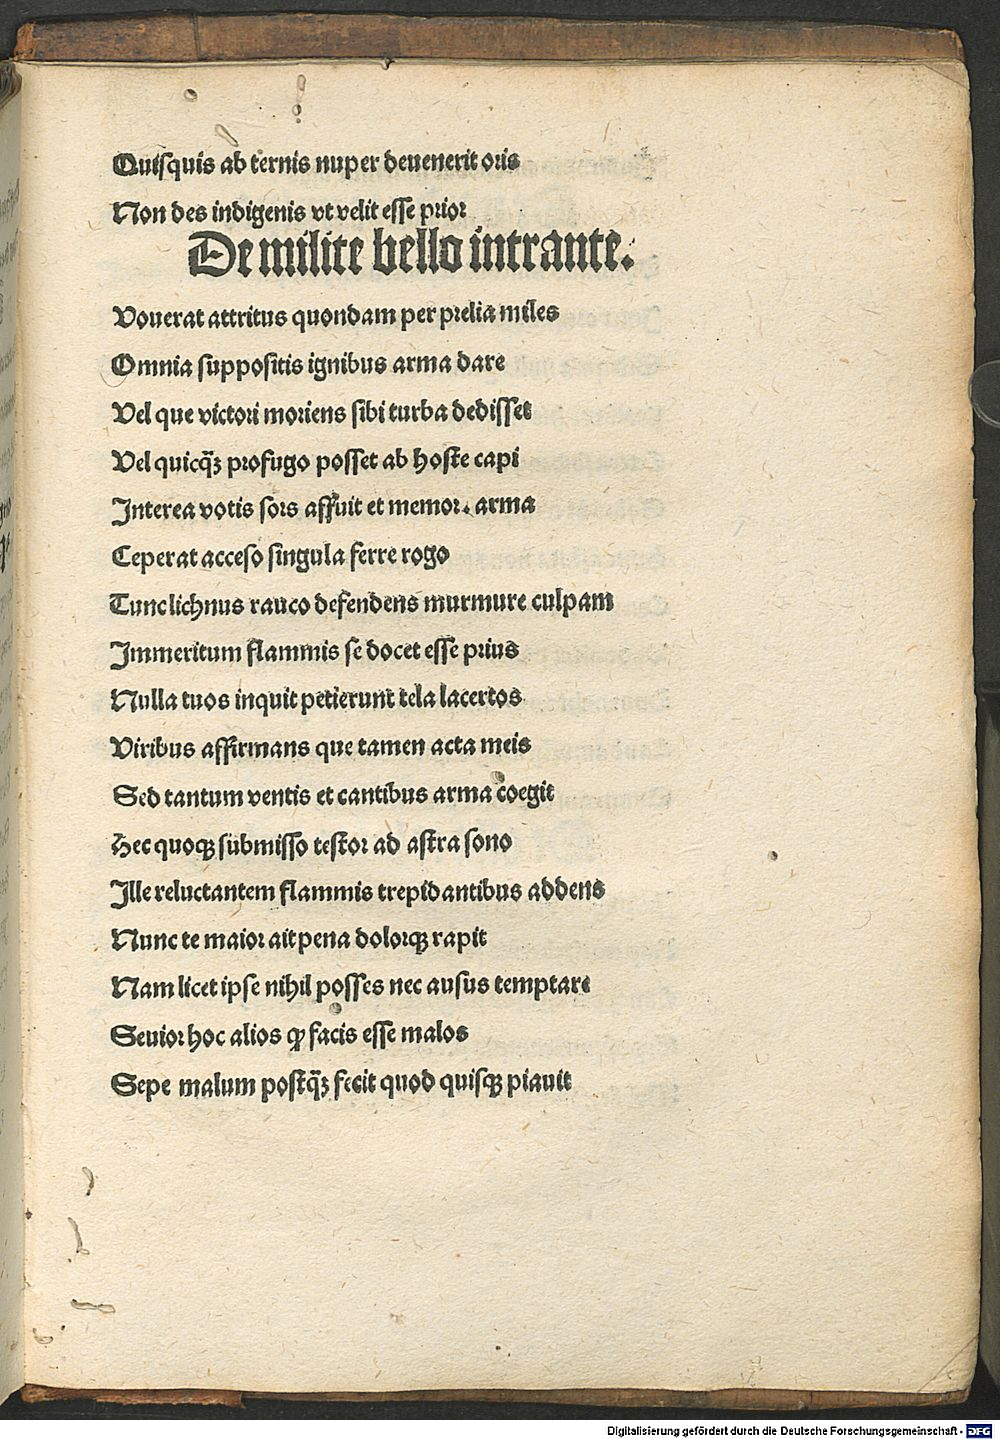 Quisquis ab ternis nuper deuenerit oris
Non des indigenis vt velit esse prior
De milite bello intrante.
Vouerat attritus quondam per prelia miles
Omnia suppositis ignibus arma dare
Vel que victori moriens sibi turba dedisset
Vel quicq̃ꝫ profugo posset ab hoste capi
Interea votis sors affuit et memor. arma
Ceperat acceso singula ferre rogo
Tunc lichnus rauco defendens murmure culpam
Immeritum flammis se docet esse prius
Nulla tuos inquit petierunt tela lacertos
Viribus affirmans que tamen acta meis
Sed tantum ventis et cantibus arma coegit
Hec quoqꝫ submisso testor ad astra sono
Ille reluctantem flammis trepidantibus addens
Nunc te maior ait pena dolorqꝫ rapit
Nam licet ipse nihil posses nec ausus temptare
Seuior hoc alios ꝙ facis esse malos
Sepe malum postq̃ꝫ fecit quod quisqꝫ piauit
Digitalisierung gefördert durch die Deutsche Forschungsgemeinschaft - DFG